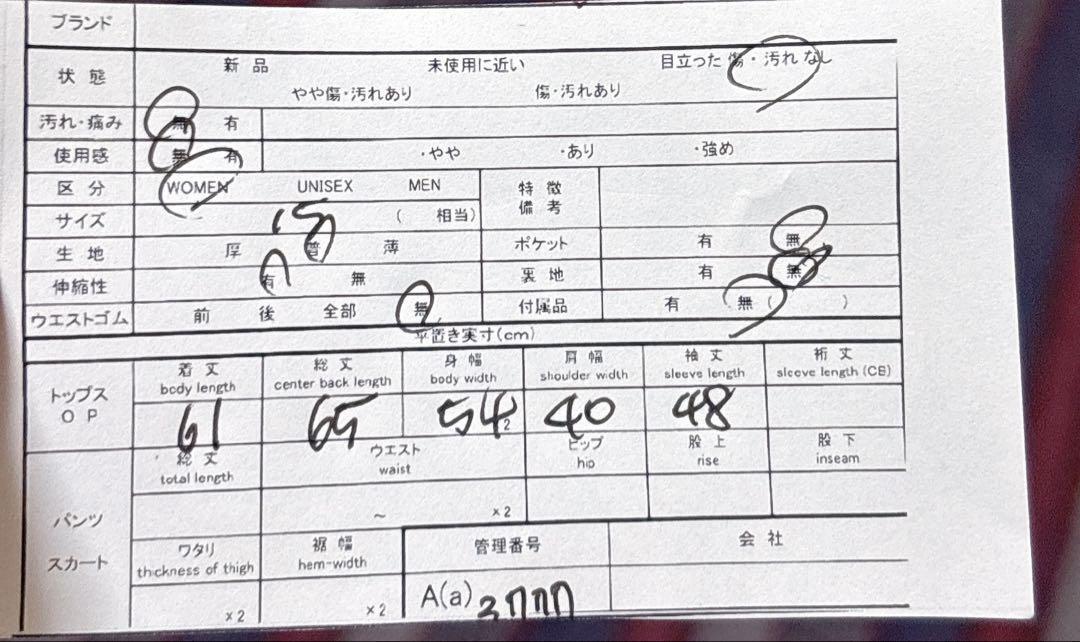 ブランド
状態 新品 未使用に近い 目立った傷・汚れなし
やや傷・汚れあり 傷・汚れあり
汚れ・痛み 無 有
使用感 無 有 ・やや ・あり ・強め
区分 WOMEN UNISEX MEN 特徴備考
サイズ ( 相当)
生地 厚 普 薄 ポケット 有 無
伸縮性 有 無 裏地 有 無
ウエストゴム 前 後 全部 無 付属品 有 無 ( )
平置き実寸(cm)
トップス OP 着丈 総丈 身幅 肩幅 袖丈 裄丈
body length center back length body width shoulder width sleeve length sleeve length (CB)
61 65 54 2 40 48
総丈 ウエスト ヒップ 股上 股下
total length waist hip rise inseam
パンツ ~ ×2
スカート ワタリ 裾幅 管理番号 会社
thickness of thigh hem-width
×2 ×2 A(a)